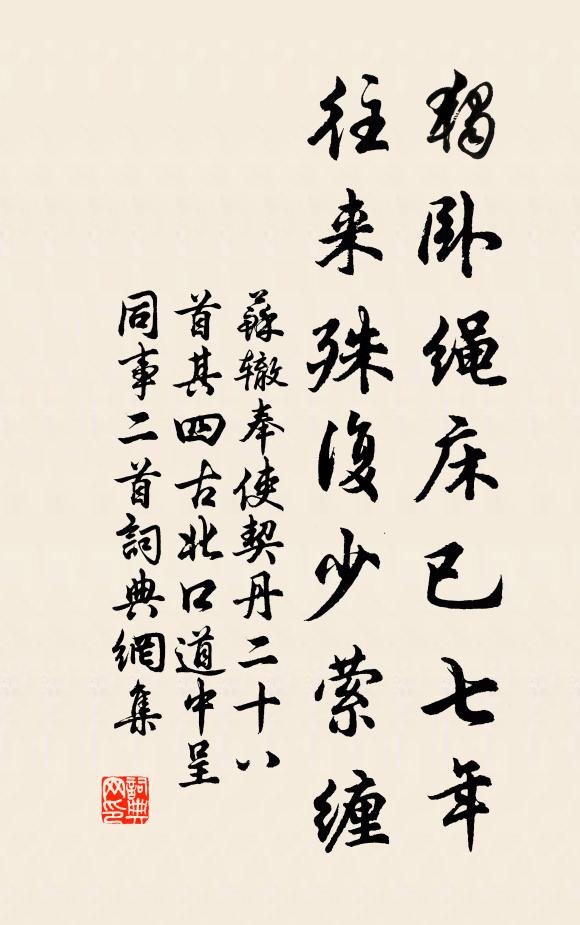 獨卧绳床已七年
往来殊復少萦缠
蘇辙奉使契丹二十八
首其四古北口道中呈
同事二首詞典網集
詞典网印